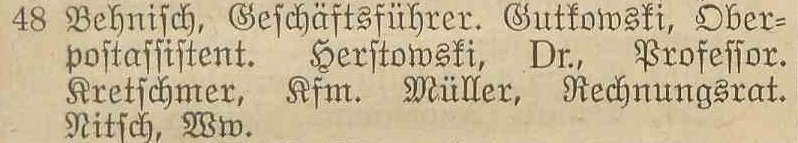 48 Behnisch, Geschäftsführer. Gutkowski, Ober-
postassistent. Herstowski, Dr., Professor.
Kretschmer, Kfm. Müller, Rechnungsrat.
Nitsch, Ww.